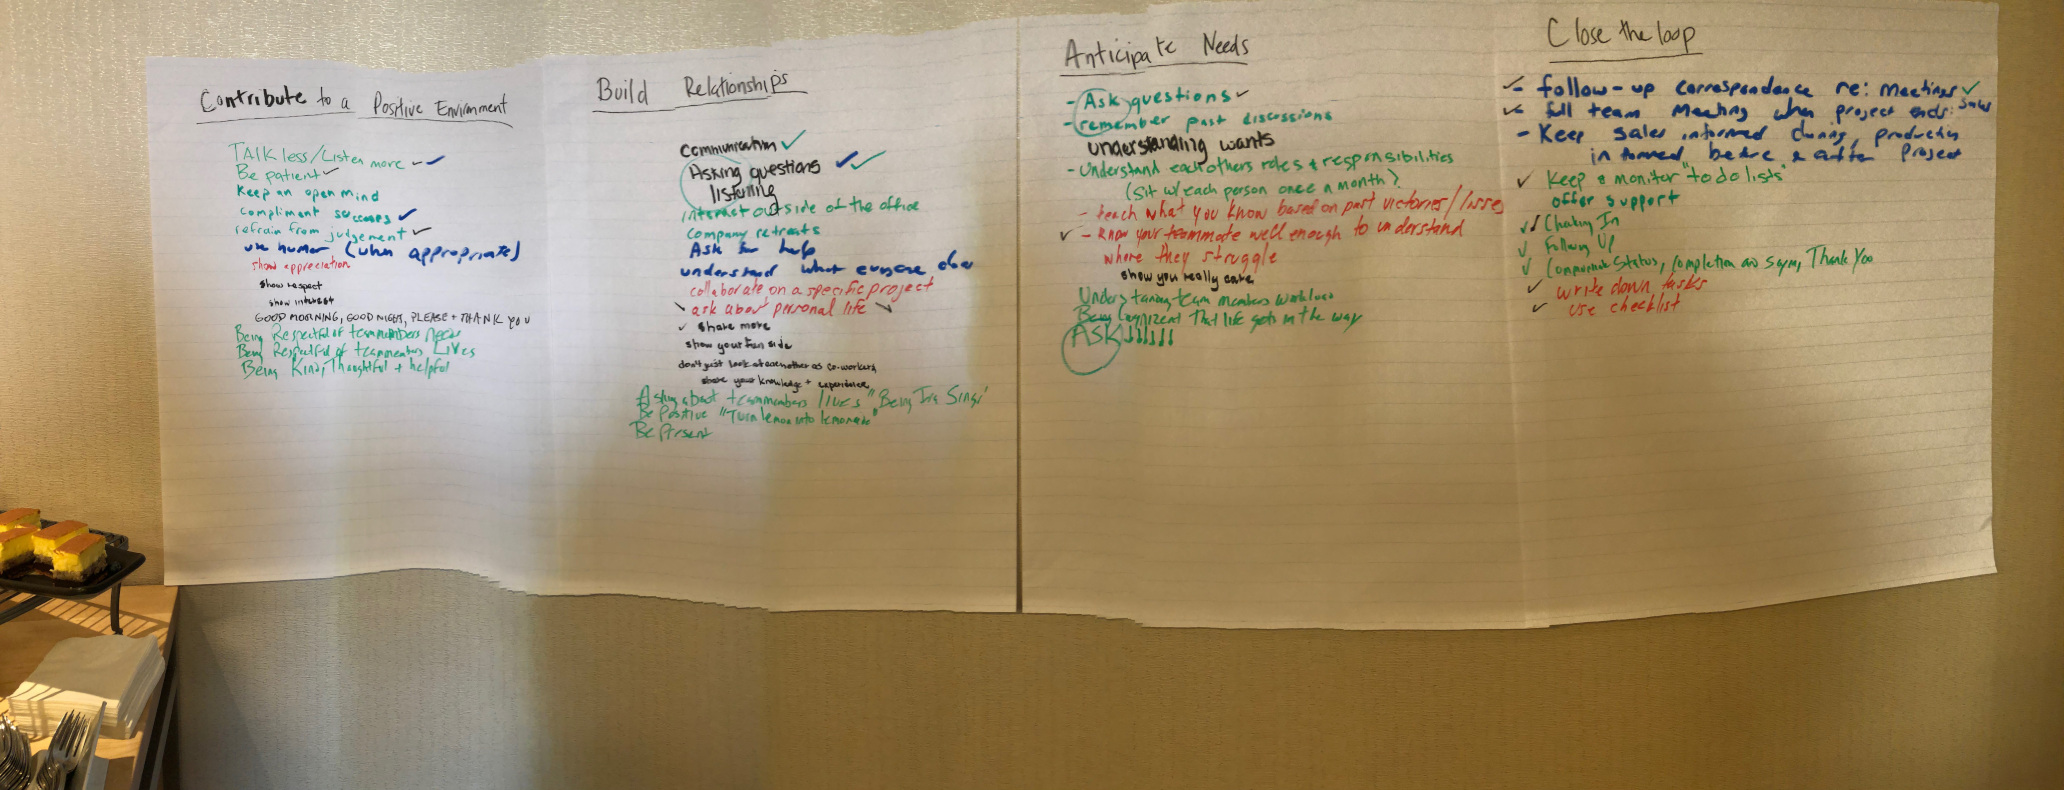 Contribute to a Positive Environment
TALK less/Listen more
Be patient
Keep an open mind
compliment successes
refrain from judgement
use humor (when appropriate)
show appreciation
show respect
show interest
GOOD MORNING, GOOD NIGHT, PLEASE + THANK YOU
Being Respectful of teammembers needs
Being Respectful of teammembers LIVES
Being Kind, Thoughtful + helpful
Build Relationships
Communication
Asking questions
listening
interact outside of the office
company retreats
Ask for help
understand what everyone does
collaborate on a specific project
ask about personal life
share more
show your fun side
don't just look at each other as co-workers
share your knowledge + experience
Asking about teammembers lives "Being
Be Positive "Turn lemon into lemonade"
Be Present
Anticipate Needs
- Ask questions
- remember past discussions
understanding wants
- Understand each others roles + responsibilities
(Sit w/each person once a month)
- teach what you know based on past victories/losses
- Know your teammate well enough to understand
where they struggle
show you really care
Understanding team members workload
Being Cognizent That life gets in the way
ASK!!!!!!
Close the loop
- follow-up correspondence re: meetings
- full team Meeting when project ends: Sales
- Keep sales informed during, production
informed before & after project
Keep & monitor "to do lists"
offer support
Checking In
Following Up
Communicate Status, Completion and Thank You
write down tasks
use checklist